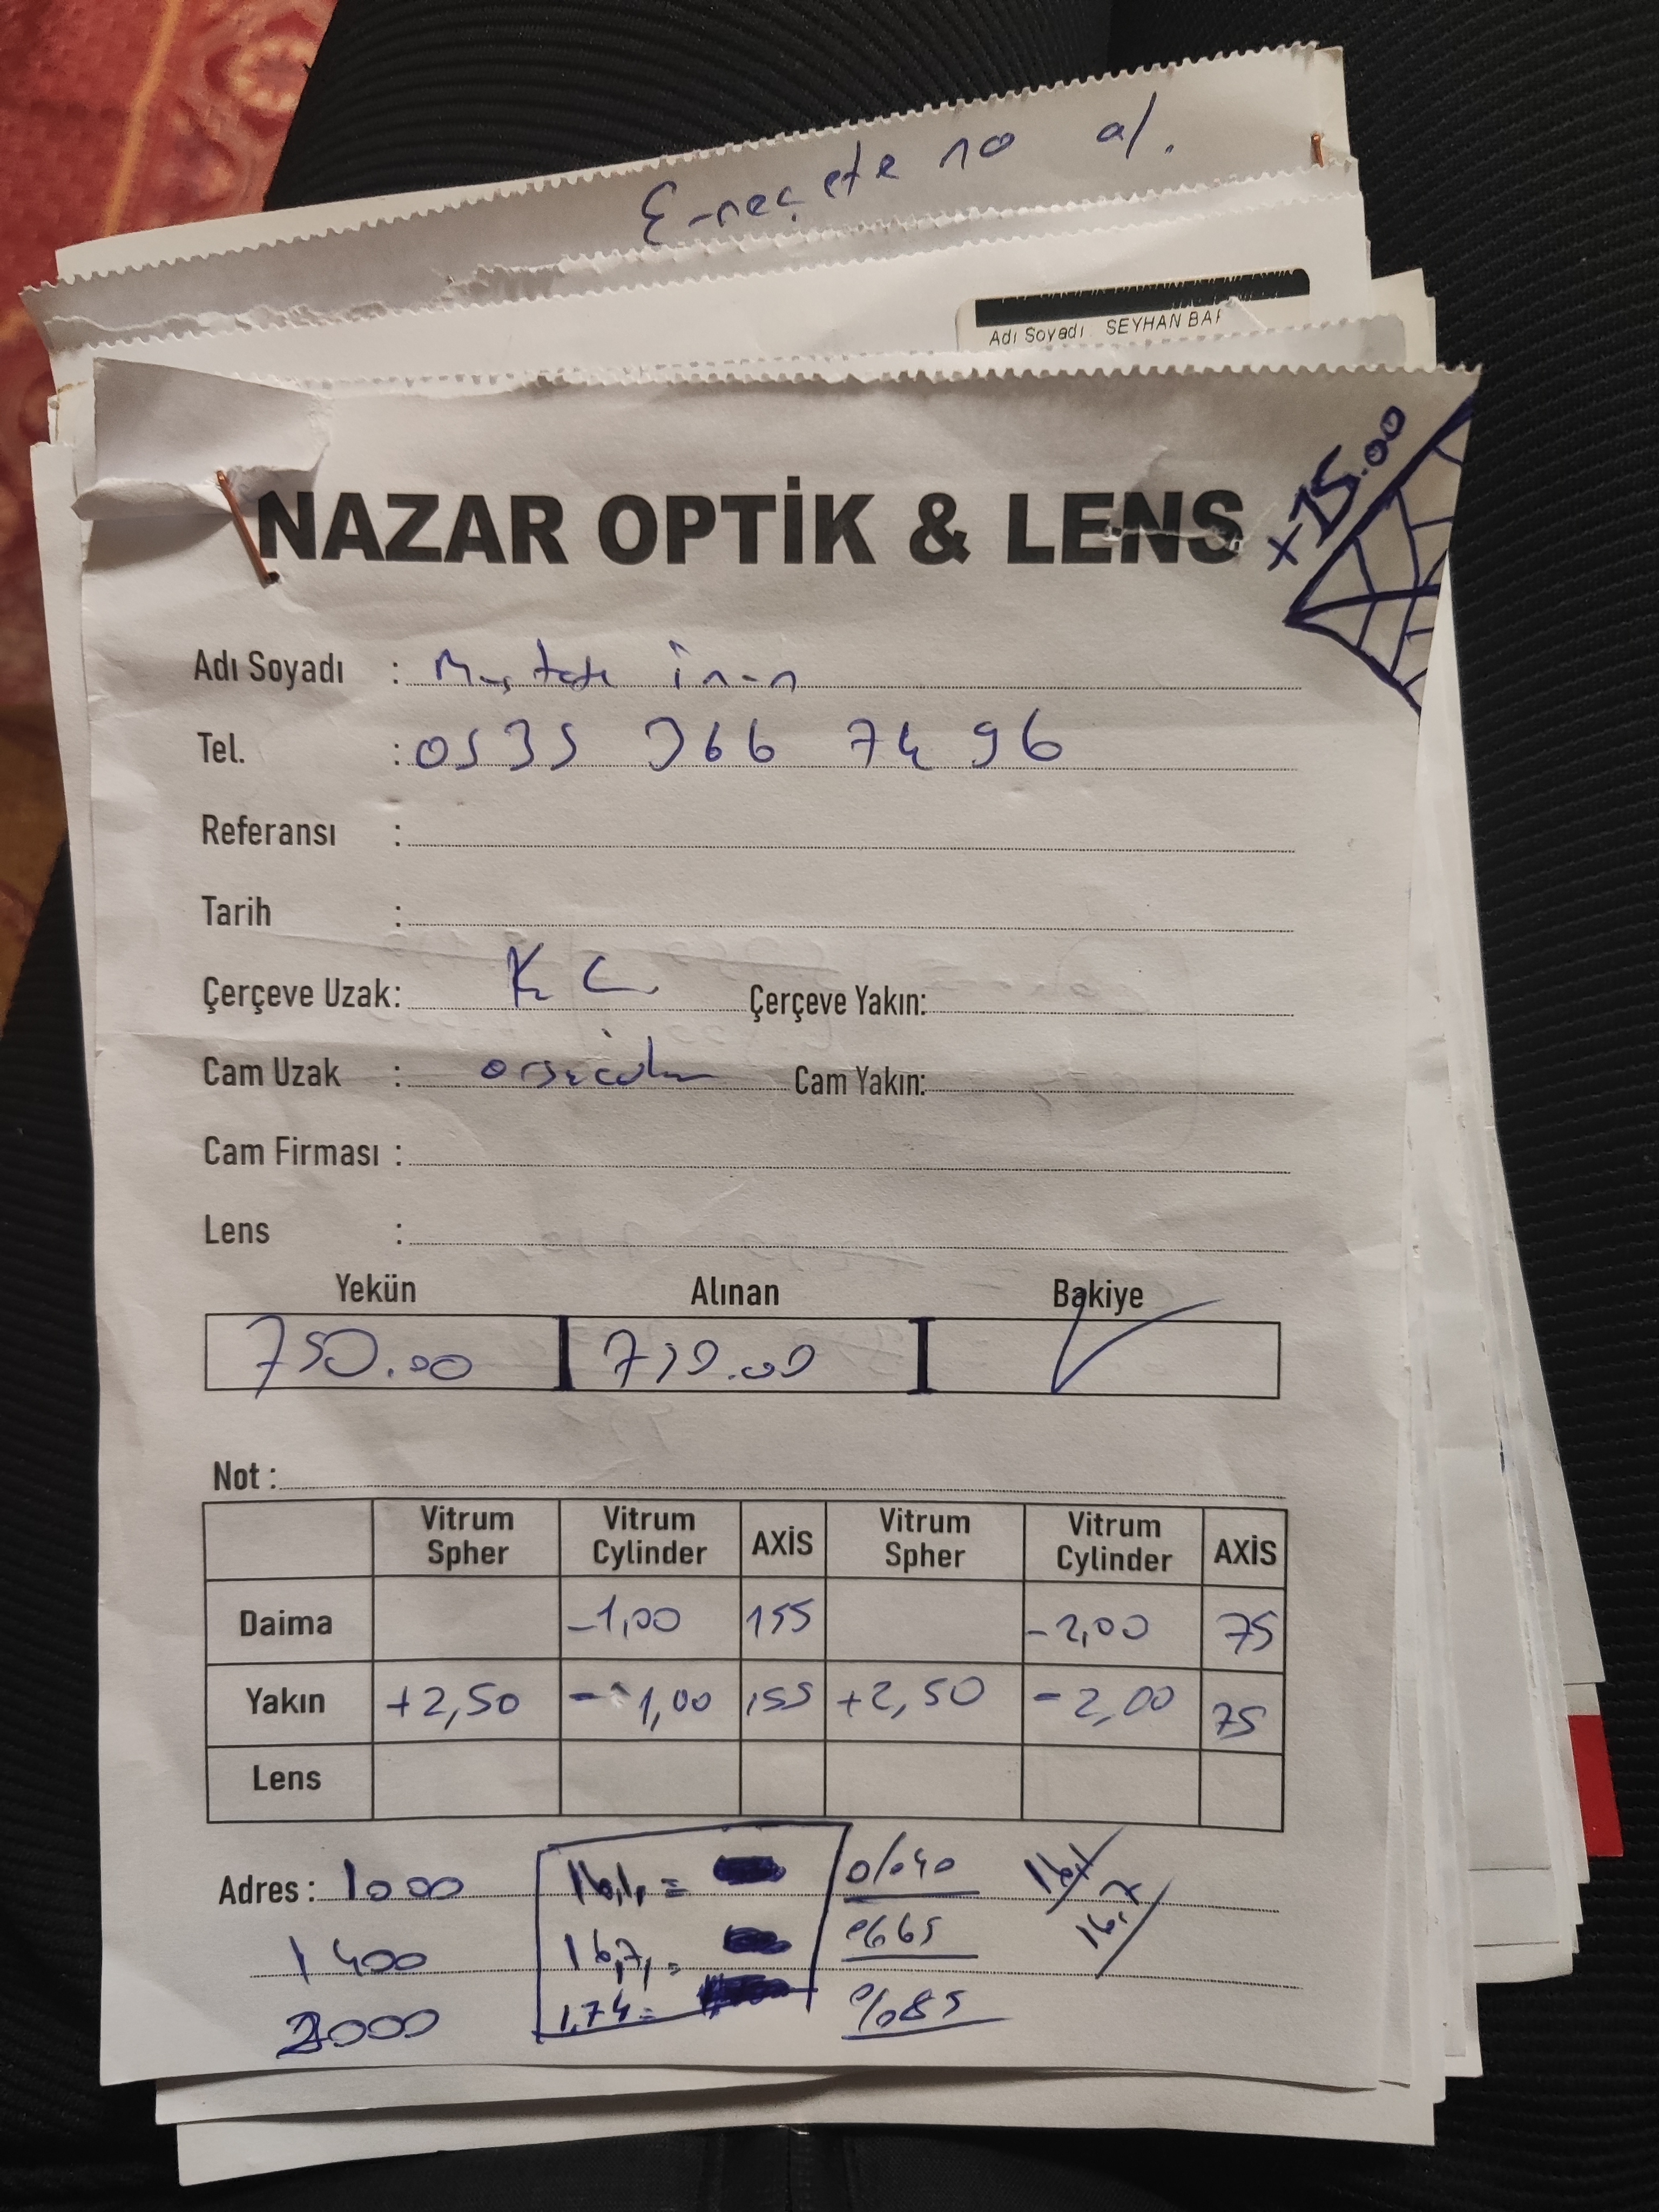 E-reçete no al.
Adı Soyadı SEYHAN
NAZAR OPTİK & LENS
x 15.00
Adı Soyadı : Mustafa inan
Tel. : 0535 366 74 96
Referansı :
Tarih :
Çerçeve Uzak: K C. Çerçeve Yakın:
Cam Uzak : Cam Yakın:
Cam Firması :
Lens :
Yekün Alınan Bakiye
750.00 750.00 ✓
Not :
Vitrum Spher Vitrum Cylinder AXİS Vitrum Spher Vitrum Cylinder AXİS
Daima -1,00 155 -2,00 75
Yakın +2,50 -1,00 155 +2,50 -2,00 75
Lens
Adres : 1000 16,1, = %40 16,1
1400 16,7, = %65 16,7
2000 1,74 = %85